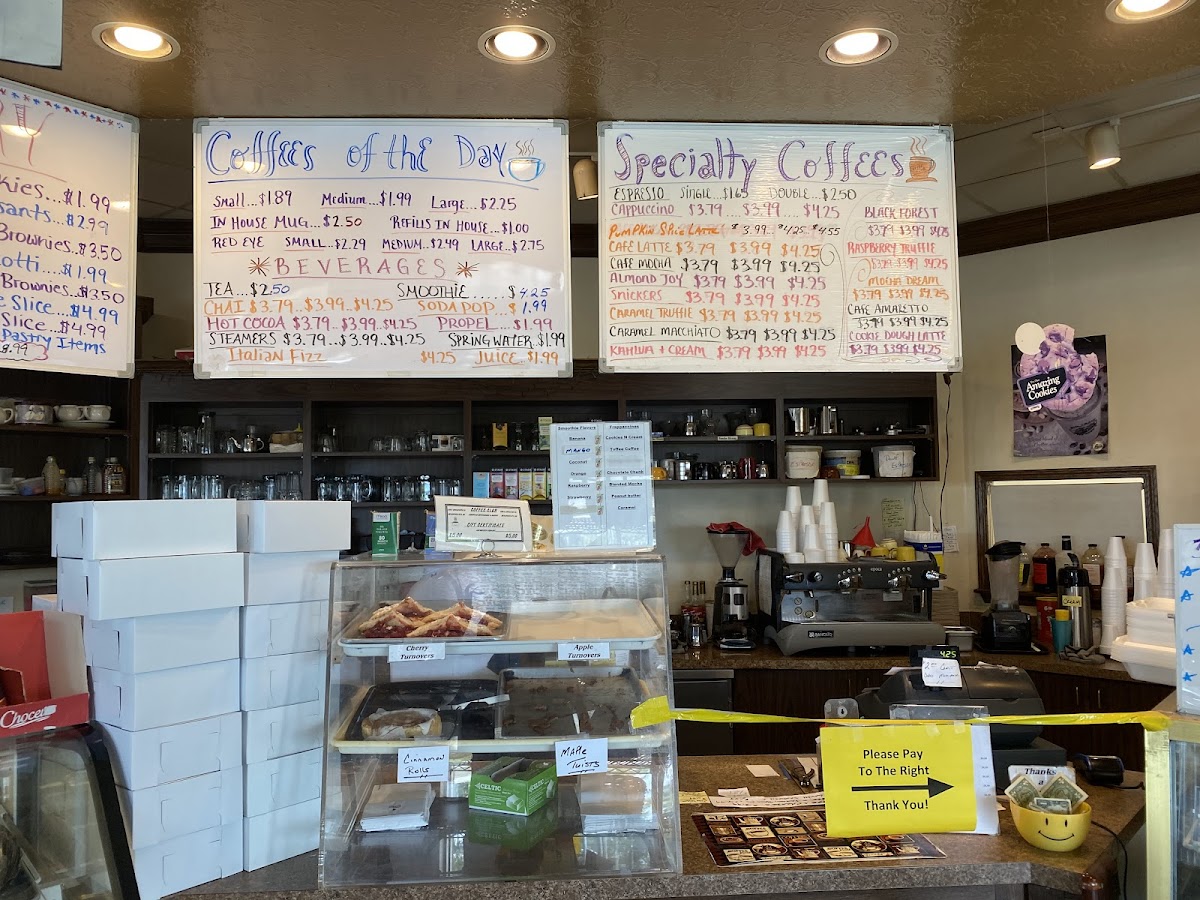 kies...$1.99
sants...$2.99
Brownies..$3.50
otti....$1.99
Brownies..$3.50
e Slice...$4.99
Slice..$4.99
Pastry Items
8.99
Coffees of the Day
Small...$1.89 Medium...$1.99 Large...$2.25
IN HOUSE MUG...$2.50 REFILLS IN HOUSE...$1.00
RED EYE SMALL...$2.29 MEDIUM...$2.49 LARGE..$2.75
BEVERAGES
TEA...$2.50 SMOOTHIE......$4.25
CHAI $3.79...3.99..$4.25 SODA POP...$1.99
HOT COCOA $3.79...$3.99...$4.25 PROPEL...$1.99
STEAMERS $3.79...$3.99..$4.25 SPRING WATER..$1.99
Italian Fizz $4.25 JUICE..$1.99
Specialty Coffees
ESPRESSO SINGLE...$1.65 DOUBLE...$2.50
CAPPUCCINO $3.79....$3.99....$4.25
PUMPKIN SPICE LATTE $3.99 $4.25 $4.55
CAFE LATTE $3.79 $3.99 $4.25
CAFE MOCHA $3.79 $3.99 $4.25
ALMOND JOY $3.79 $3.99 $4.25
SNICKERS $3.79 $3.99 $4.25
CARAMEL TRUFFLE $3.79 $3.99 $4.25
CARAMEL MACCHIATO $3.79 $3.99 $4.25
KAHLUA + CREAM $3.79 $3.99 $4.25
BLACK FOREST
$3.79 $3.99 $4.25
RASPBERRY TRUFFLE
$3.79 $3.99 $4.25
MOCHA DREAM
$3.79 $3.99 $4.25
CAFE AMARETTO
$3.79 $3.99 $4.25
COOKIE DOUGH LATTE
$3.79 $3.99 $4.25
Amazing
Cookies
Smoothie Flavors
Banana
MANGO
Coconut
Orange
Raspberry
Strawberry
Frappuccinos
Cookies N Cream
Toffee Coffee
Chocolate Chunk
Blended Mocha
Peanut Butter
Caramel
GIFT CERTIFICATE
$5.00
$5.00
Cherry
Turnovers
Apple
Turnovers
Cinnamon
Rolls
MAPLE
TWISTS
CELTIC
Chocer
4.25
Please Pay
To The Right
Thank You!
Thanks